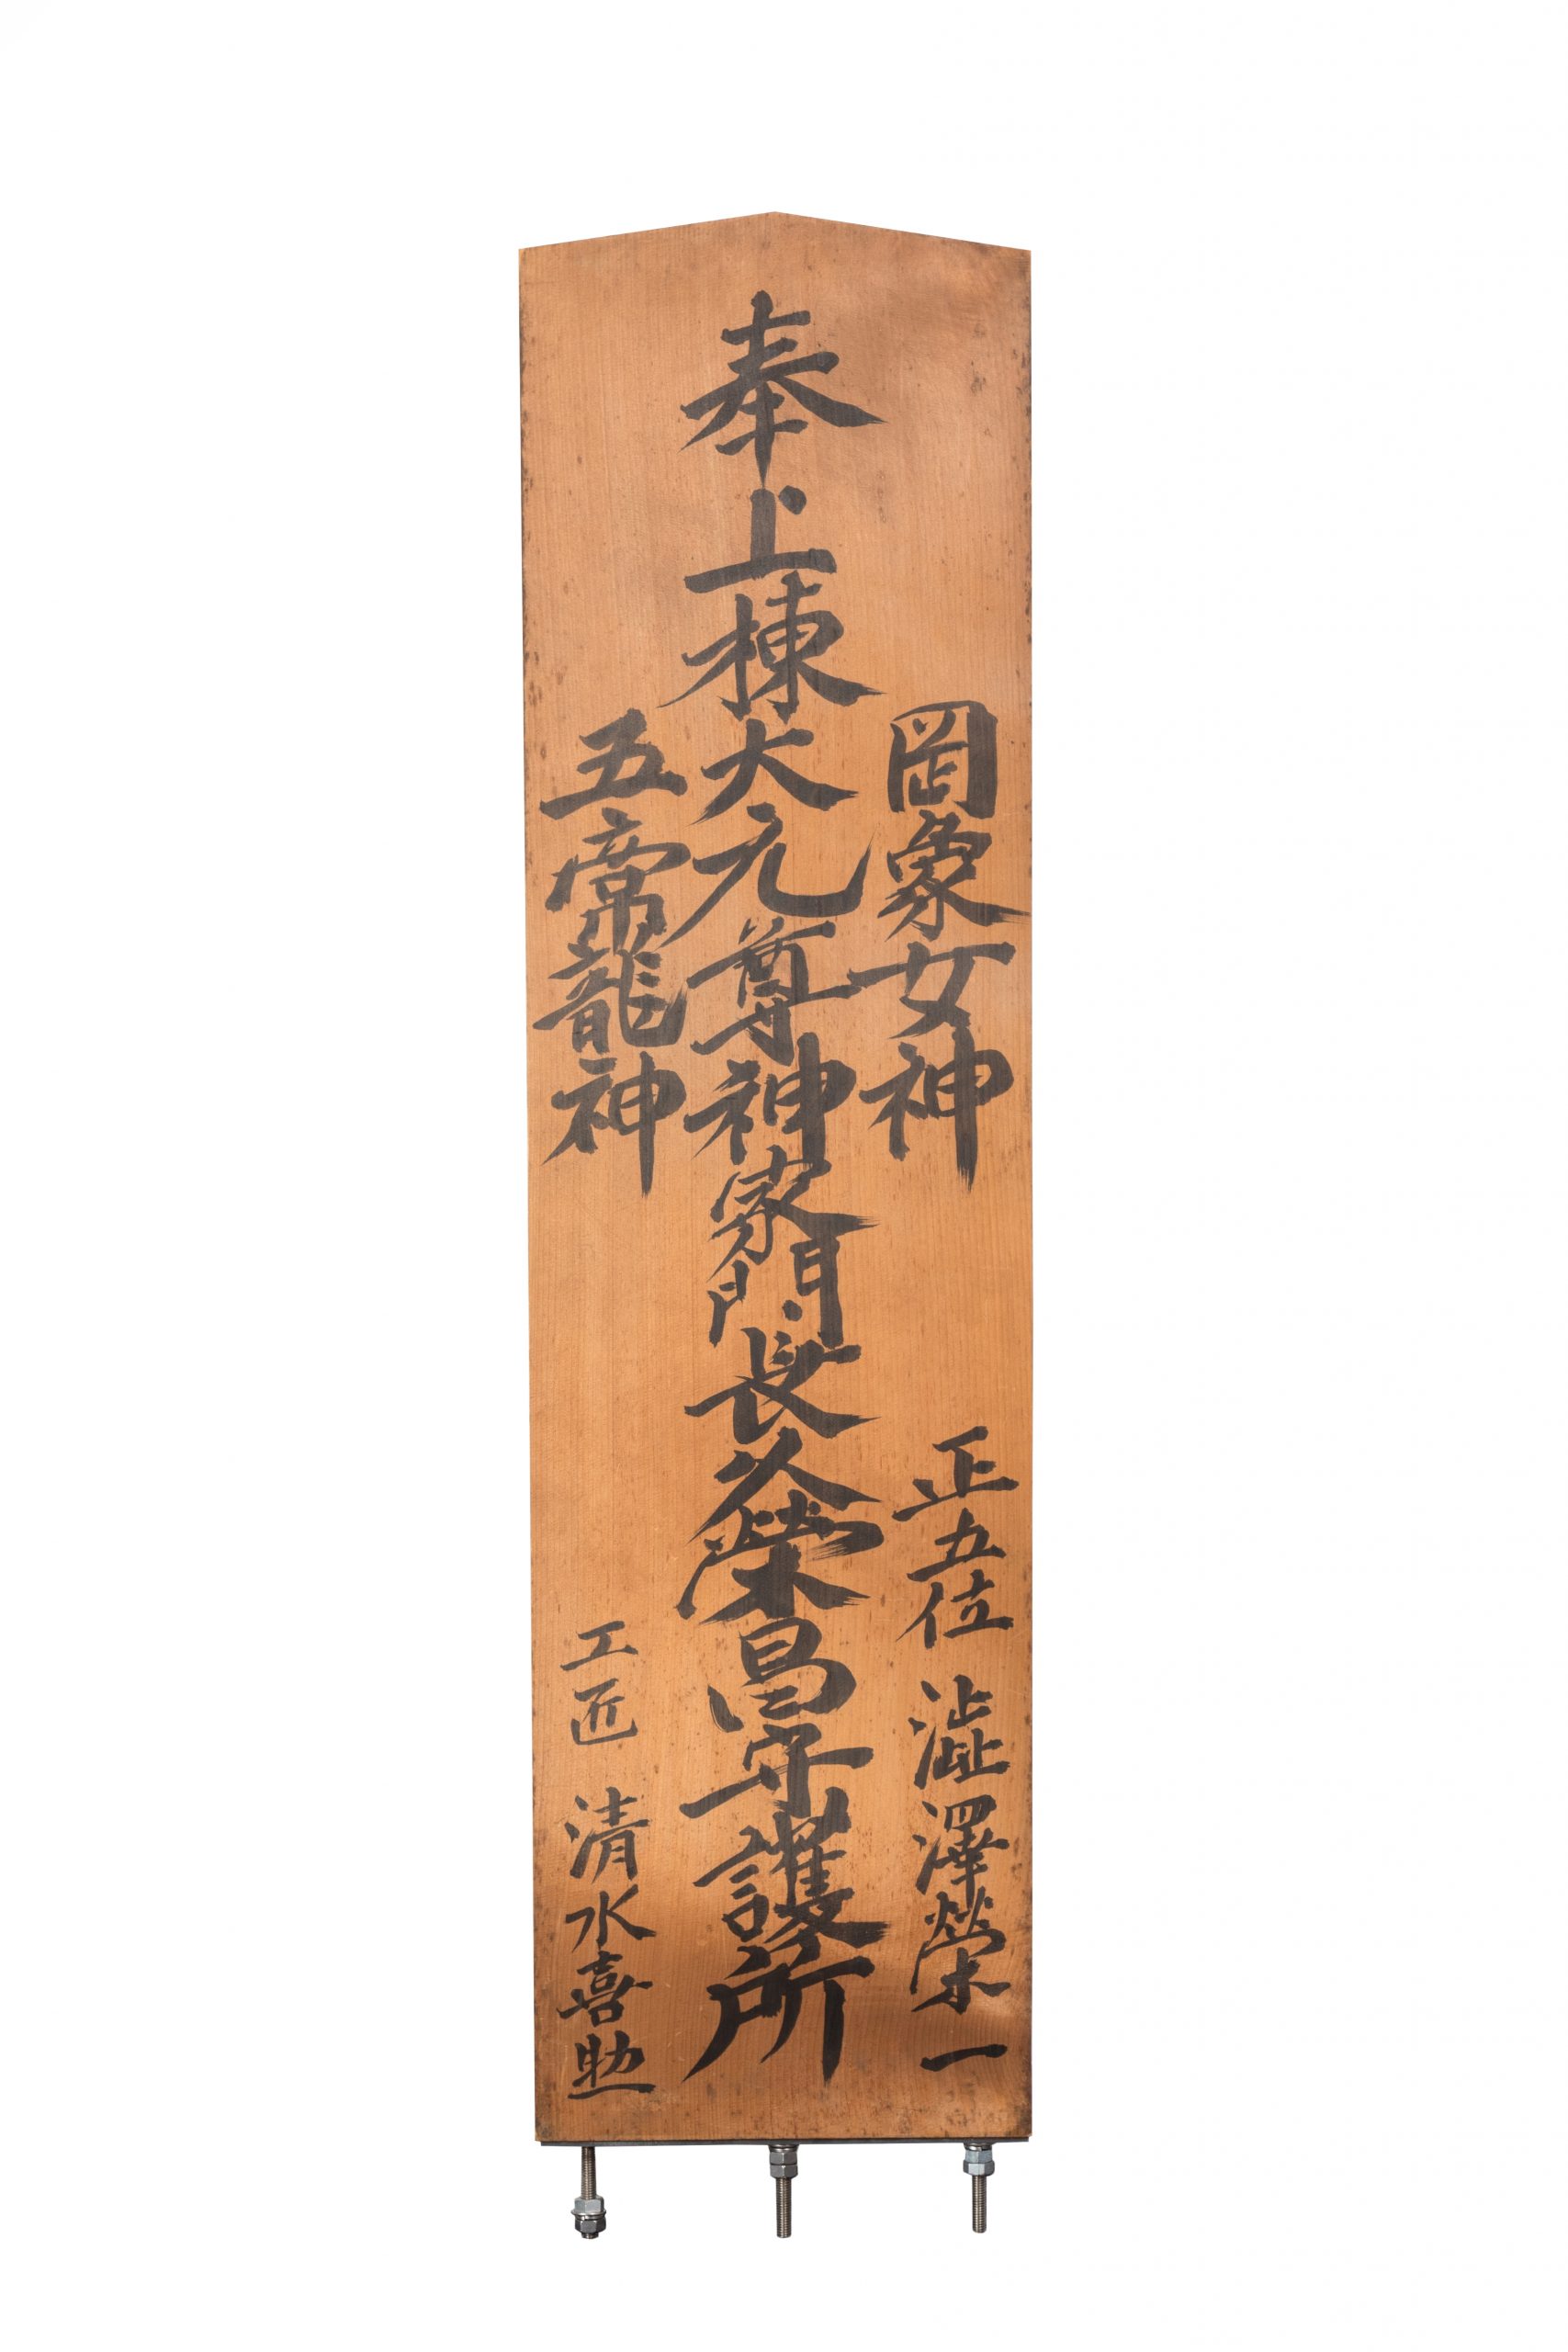 奉上棟大元尊神家門長久榮昌守護所
罔象女神
五帝龍神
正五位 澁澤榮一
工匠 清水喜助